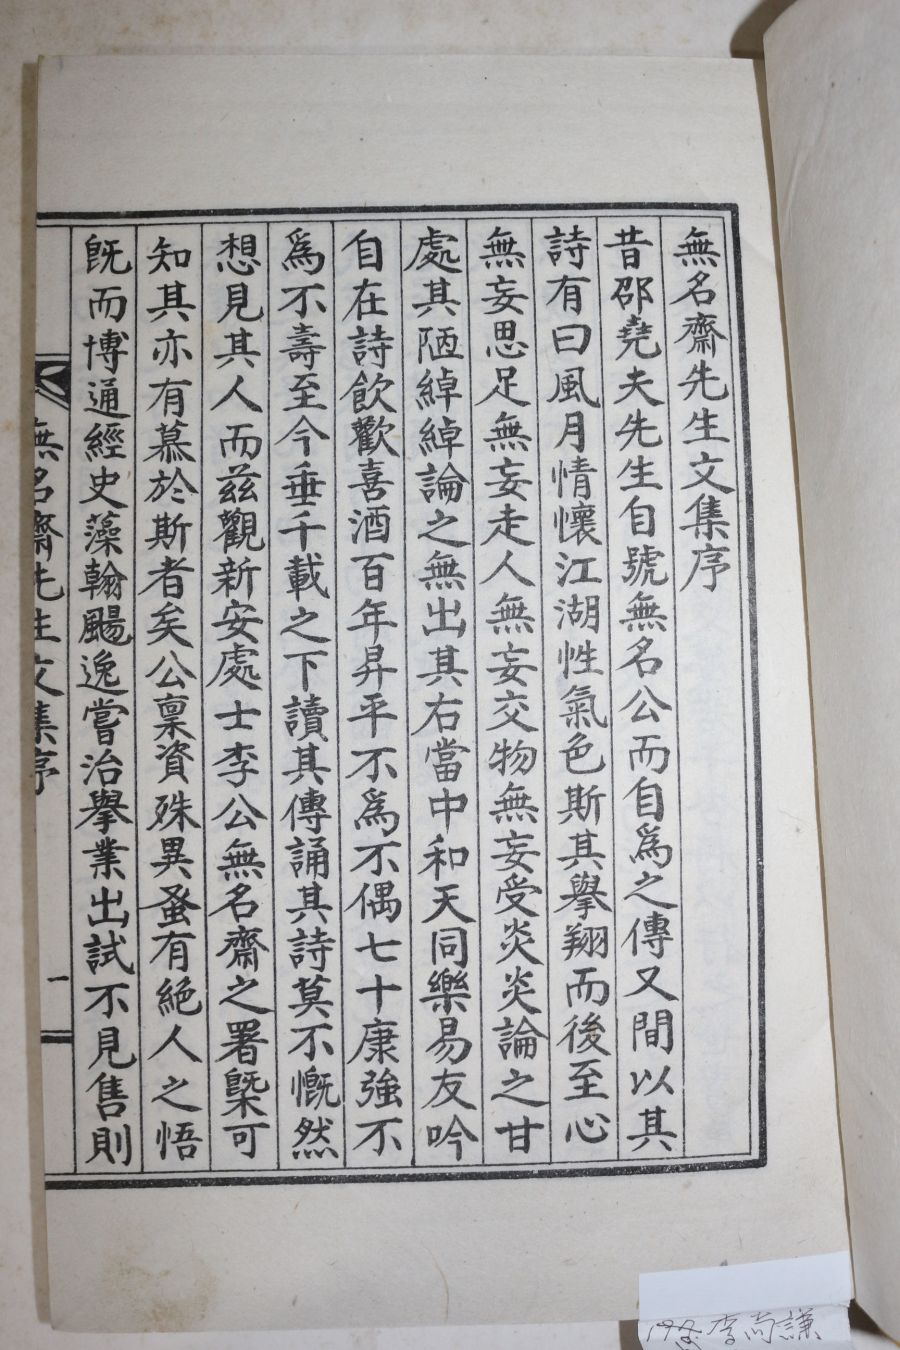 無名齋先生文集序
昔邵堯夫先生自號無名公而自爲之傳又間以其
詩有曰風月情懷江湖性氣色斯其擧翔而後至心
無妄思足無妄走人無妄交物無妄受炎炎論之甘
處其陋綽綽論之無出其右當中和天同樂易友吟
自在詩飮歡喜酒百年昇平不爲不偶七十康強不
爲不壽至今垂千載之下讀其傳誦其詩莫不慨然
想見其人而玆觀新安處士李公無名齋之署槩可
知其亦有慕於斯者矣公稟資殊異蚤有絶人之悟
旣而博通經史藻翰颺逸嘗治擧業出試不見售則
無名齋先生文集序
一
李尚謙